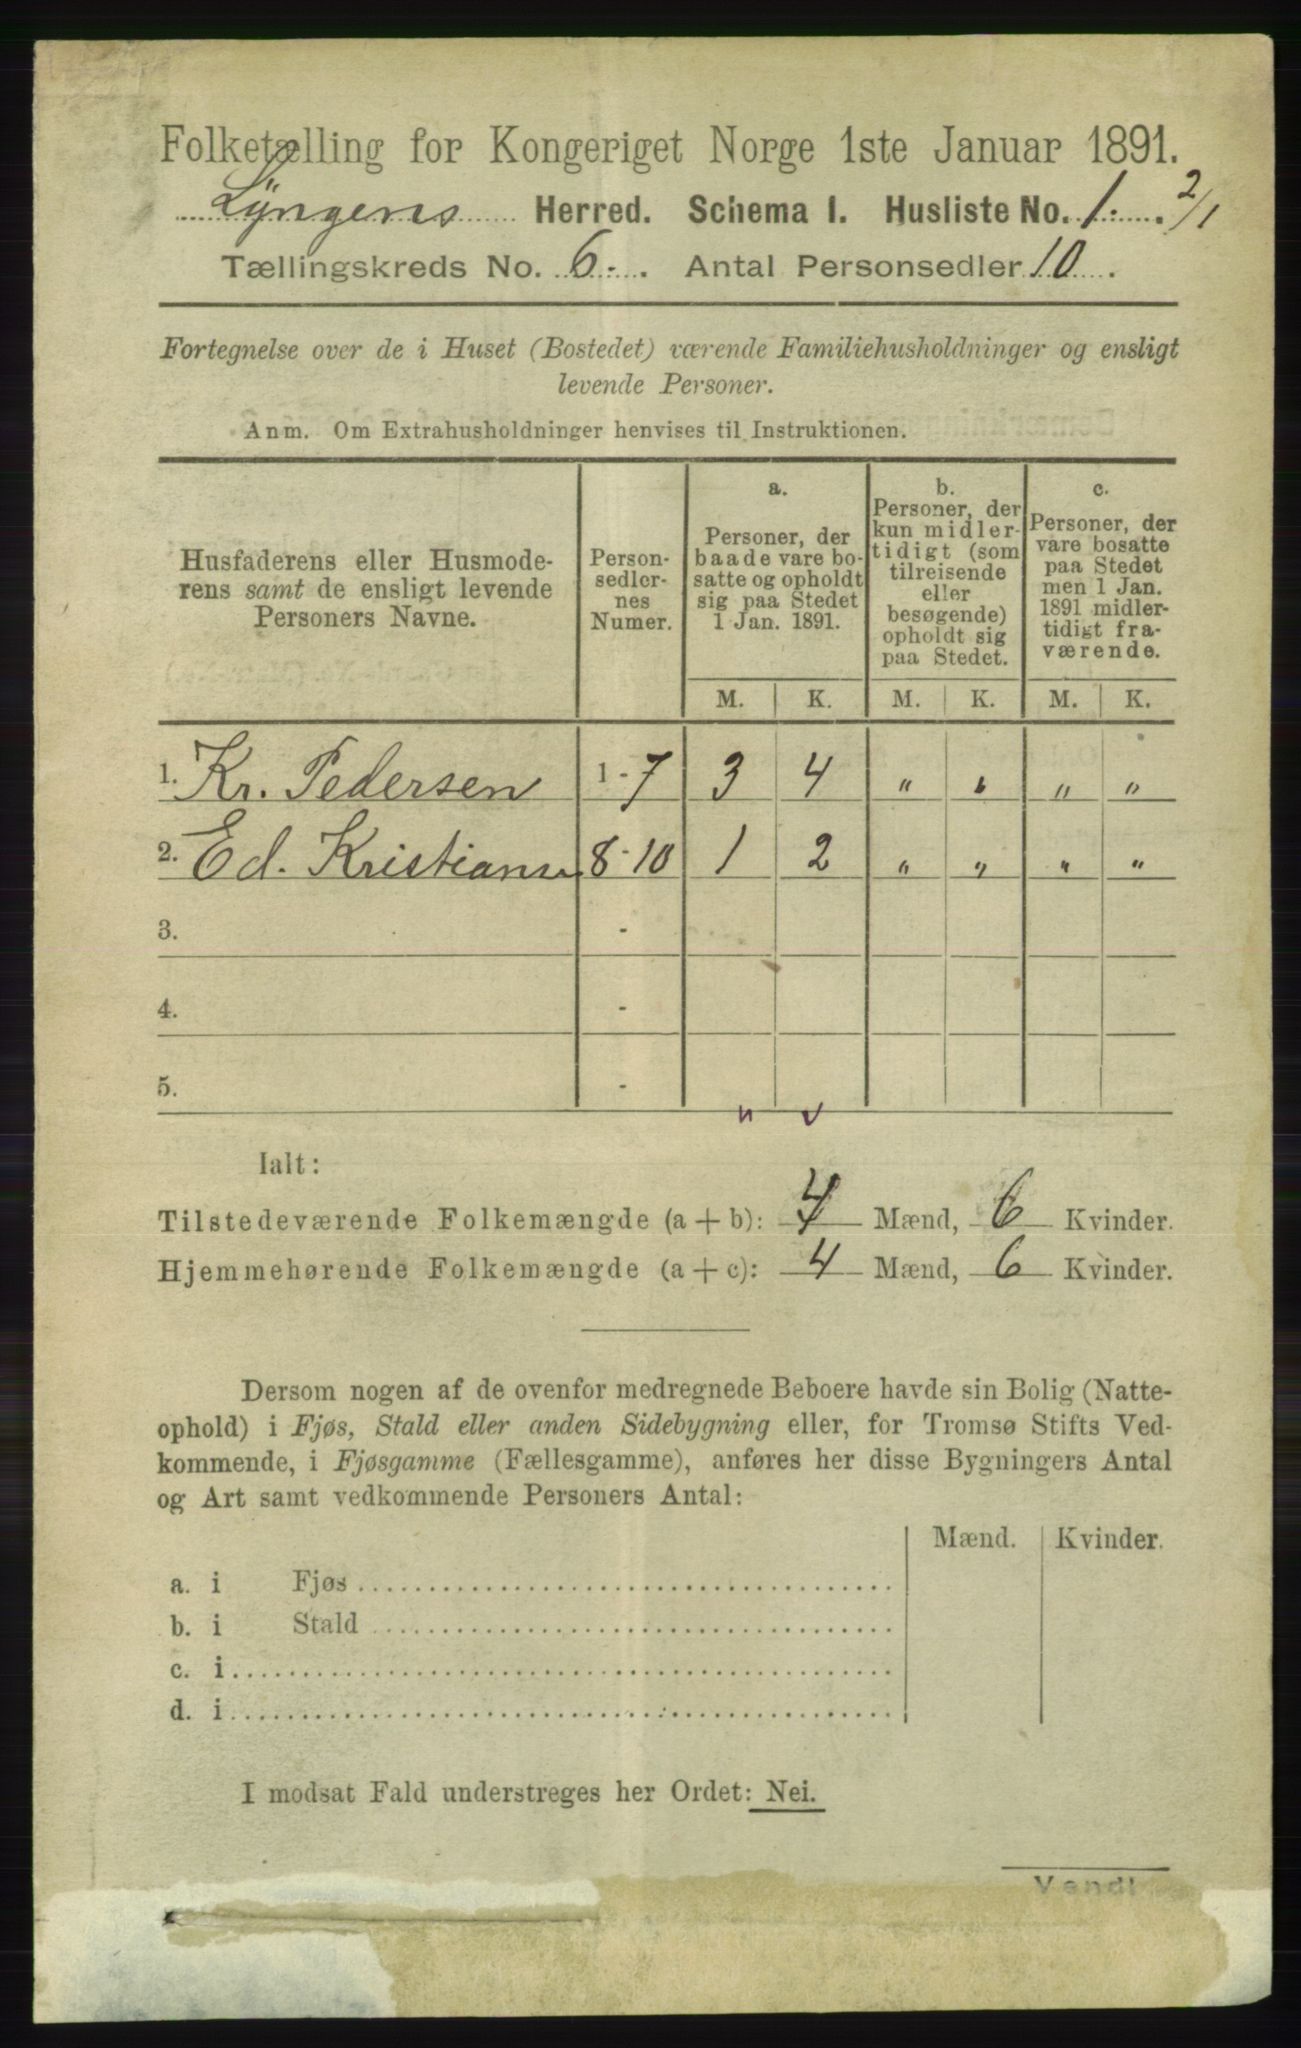 Folketælling for Kongeriget Norge 1ste Januar 1891.
Lyngens Herred. Schema I. Husliste No. 1. 2/1
Tællingskreds No. 6. Antal Personsedler 10.
Fortegnelse over de i Huset (Bostedet) værende Familiehusholdninger og ensligt
levende Personer.
Anm. Om Extrahusholdninger henvises til Instruktionen.
Husfaderens eller Husmode-
rens samt de ensligt levende
Personers Navne.
Person-
sedler-
nes
Numer.
a.
Personer, der
baade vare bo-
satte og opholdt
sig paa Stedet
1 Jan. 1891.
b.
Personer, der
kun midler-
tidigt (som
tilreisende
eller
besøgende)
opholdt sig
paa Stedet.
c.
Personer, der
vare bosatte
paa Stedet
men 1 Jan.
1891 midler-
tidigt fra-
værende.
M. K. M. K. M. K.
1. Kr. Pedersen 1 - 7 3 4 " " " "
2. Ed. Kristiansen 8 - 10 1 2 " " " "
3. -
4. -
5. -
Ialt:
Tilstedeværende Folkemængde (a + b): 4 Mænd, 6 Kvinder.
Hjemmehørende Folkemængde (a + c): 4 Mænd, 6 Kvinder.
Dersom nogen af de ovenfor medregnede Beboere havde sin Bolig (Natte-
ophold) i Fjøs, Stald eller anden Sidebygning eller, for Tromsø Stifts Ved-
kommende, i Fjøsgamme (Fællesgamme), anføres her disse Bygningers Antal
og Art samt vedkommende Personers Antal:
Mænd. Kvinder.
a. i Fjøs
b. i Stald
c. i
d. i
I modsat Fald understreges her Ordet: Nei.
Vend!